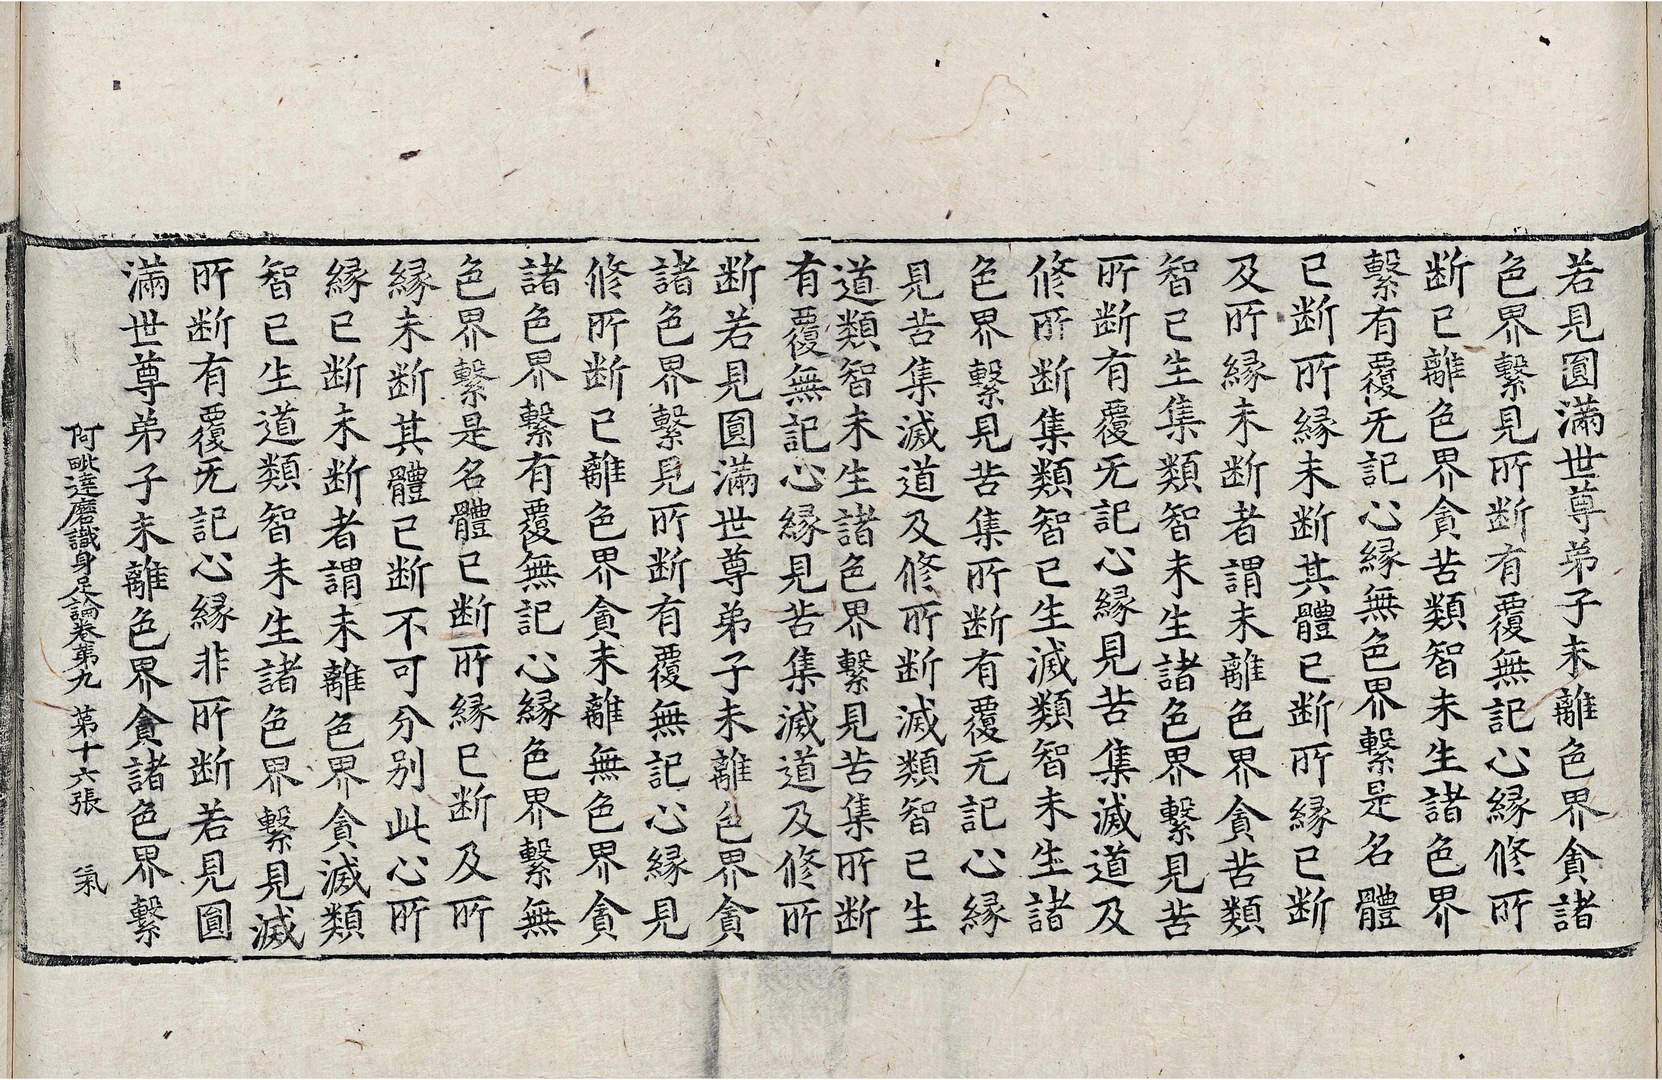 若見圓滿世尊弟子未離色界貪諸
色界繫見所断有覆無記心縁修所
断已離色界貪苦類智未生諸色界
繫有覆无記心縁無色界繫是名體
已断所縁未断其體已断所縁已断
及所縁未断者謂未離色界貪苦類
智已生集類智未生諸色界繫見苦
所断有覆无記心縁見苦集滅道及
修所断集類智已生滅類智未生諸
色界繫見苦集所断有覆无記心縁
見苦集滅道及修所断滅類智已生
道類智未生諸色界繫見苦集所断
有覆無記心縁見苦集滅道及修所
断若見圓滿世尊弟子未離色界貪
諸色界繫見所断有覆無記心縁見
修所断已離色界貪未離無色界貪
諸色界繫有覆無記心縁色界繫無
色界繫是名體已断所縁已断及所
縁未断其體已断不可分別此心所
縁已断未断者謂未離色界貪滅類
智已生道類智未生諸色界繫見滅
所断有覆无記心縁非所断若見圓
滿世尊弟子未離色界貪諸色界繫
阿毗達磨識身足論卷第九 第十六張 氣